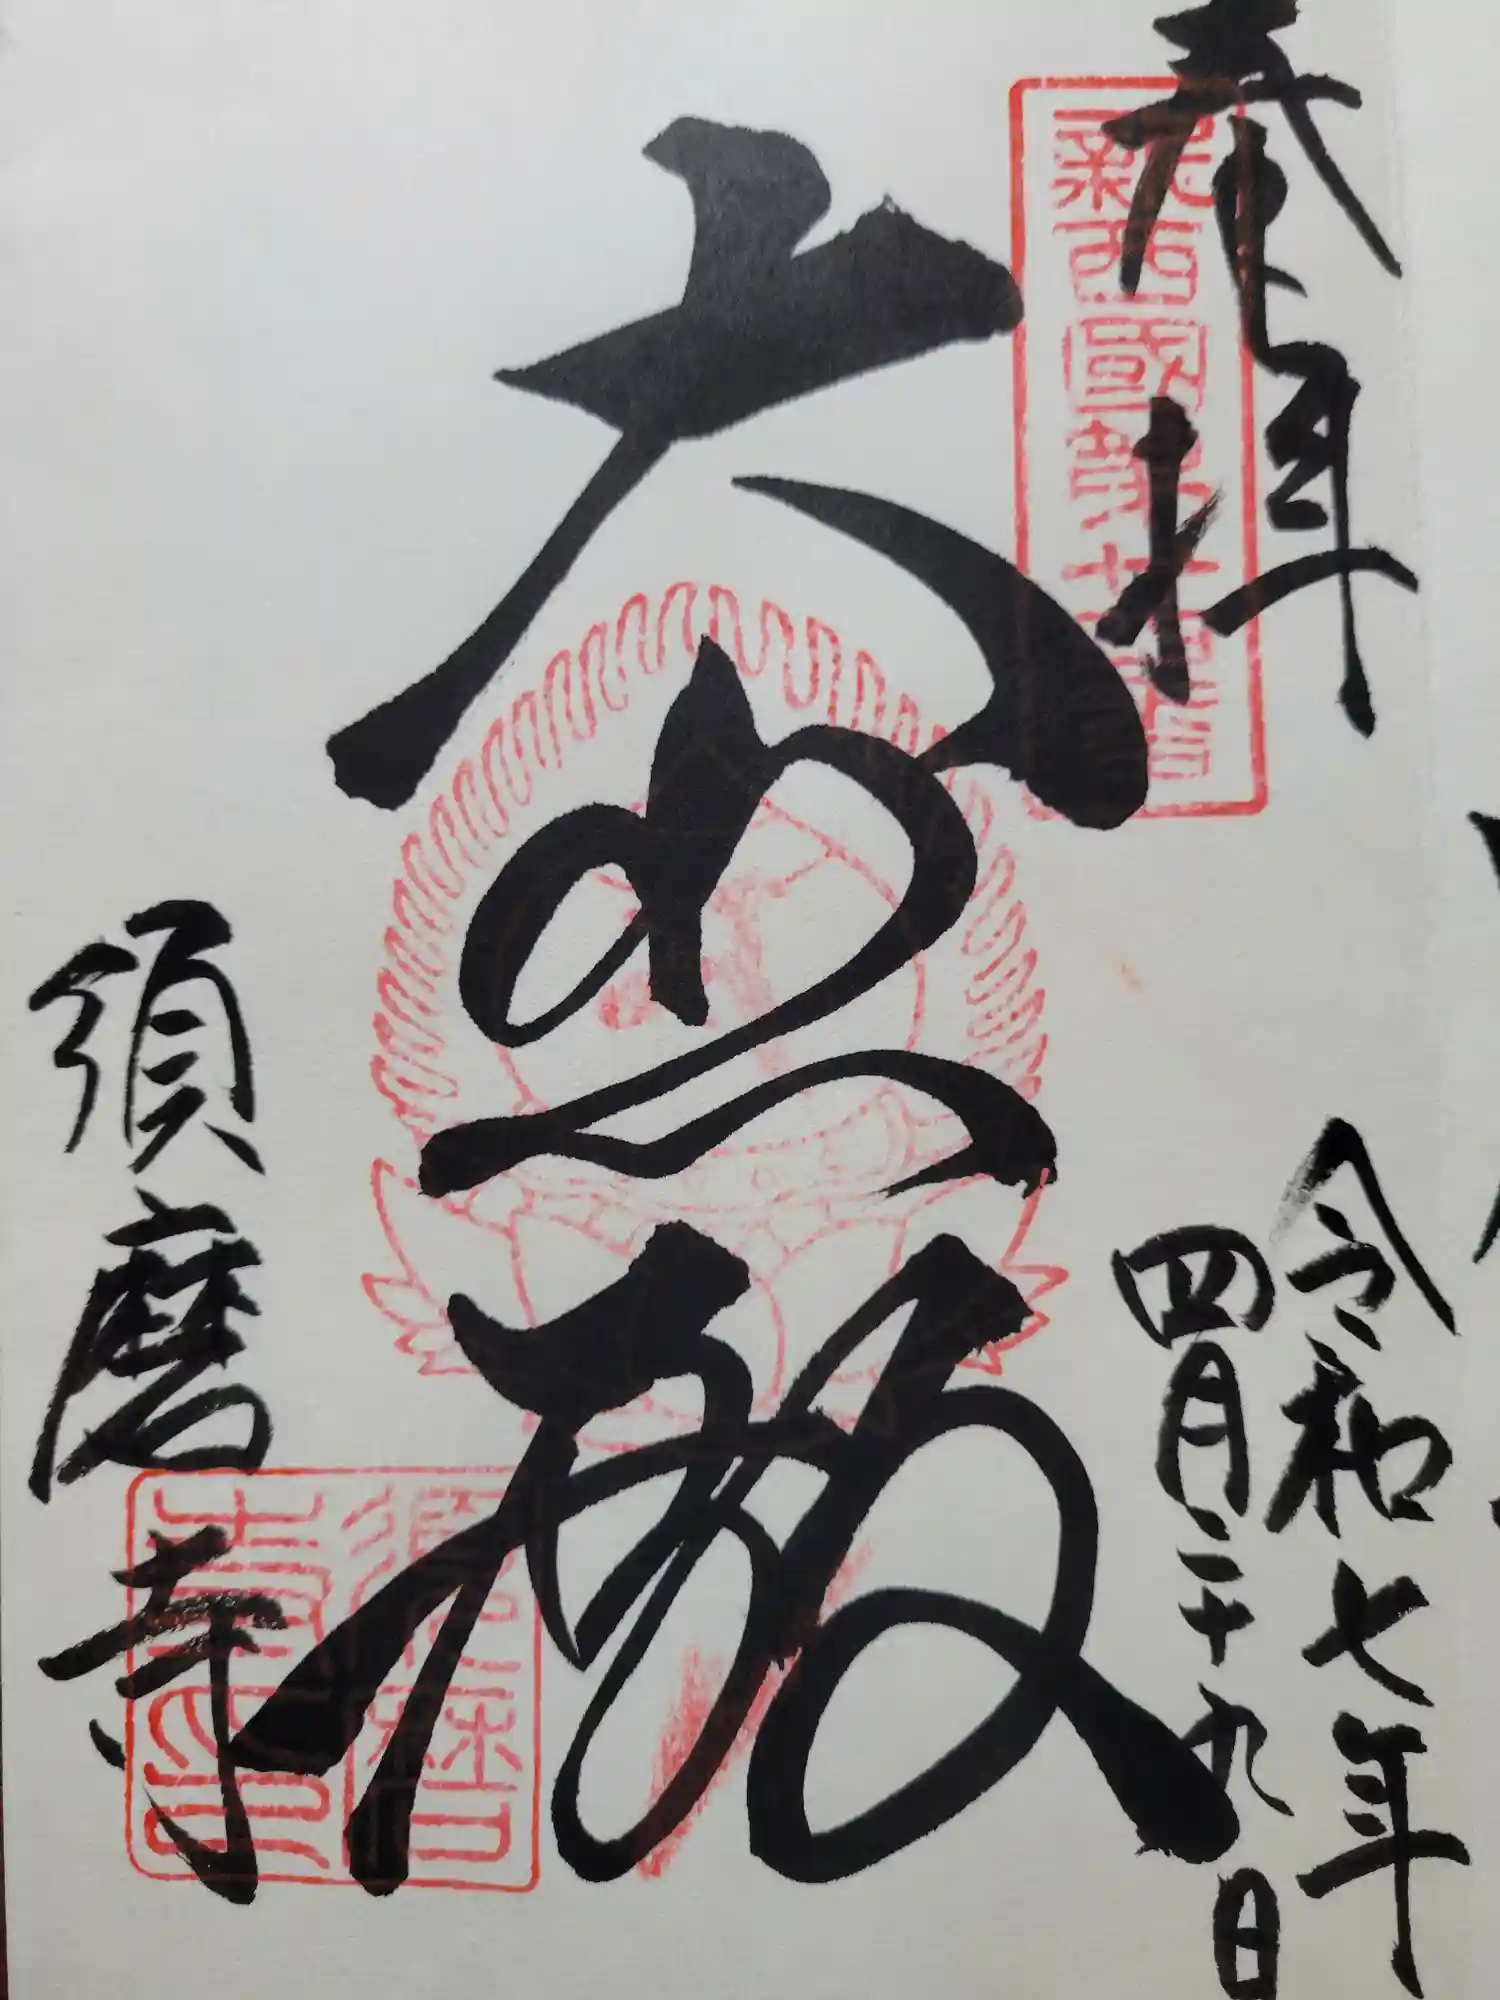 奉拝
新西國第廿四番
令和七年
四月二十九日
大悲殿
須磨寺
須磨
寺印